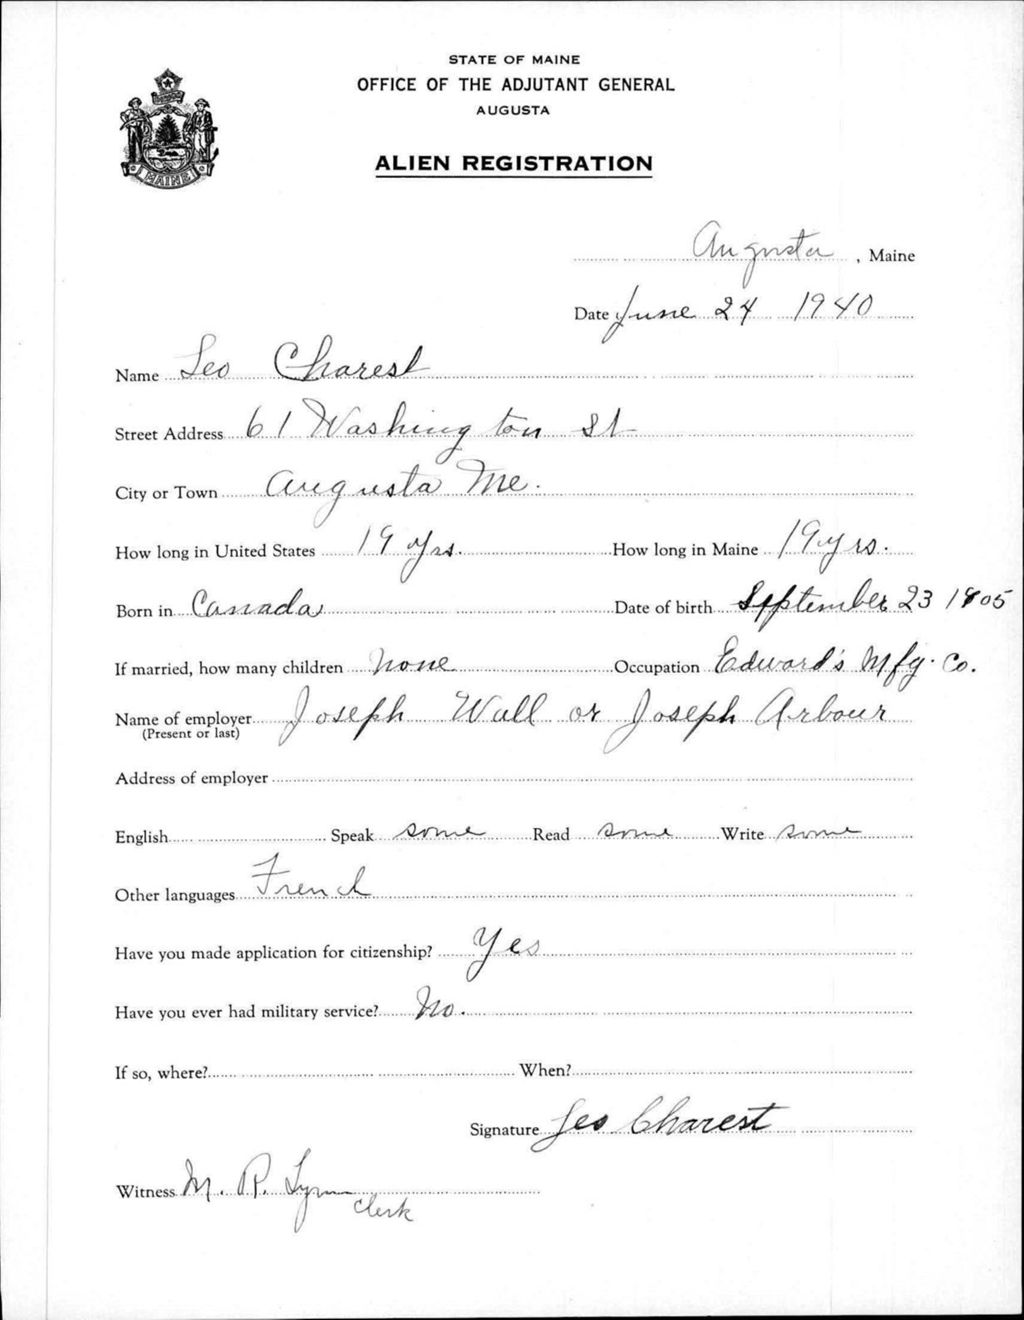 STATE OF MAINE
OFFICE OF THE ADJUTANT GENERAL
AUGUSTA
ALIEN REGISTRATION
MAINE
Augusta, Maine
Date June 24 1940
Name Leo Charest
Street Address 61 Washington St
City or Town Augusta Me.
How long in United States 19 yrs. How long in Maine 19 yrs.
Born in Canada Date of birth September 23 1905
If married, how many children None Occupation Edward's Mfg. Co.
Name of employer Joseph Wall or Joseph Arbour
(Present or last)
Address of employer
English Speak some Read some Write some
Other languages French
Have you made application for citizenship? Yes
Have you ever had military service? No.
If so, where? When?
Signature Leo Charest
Witness M. R. Lynn
Clerk